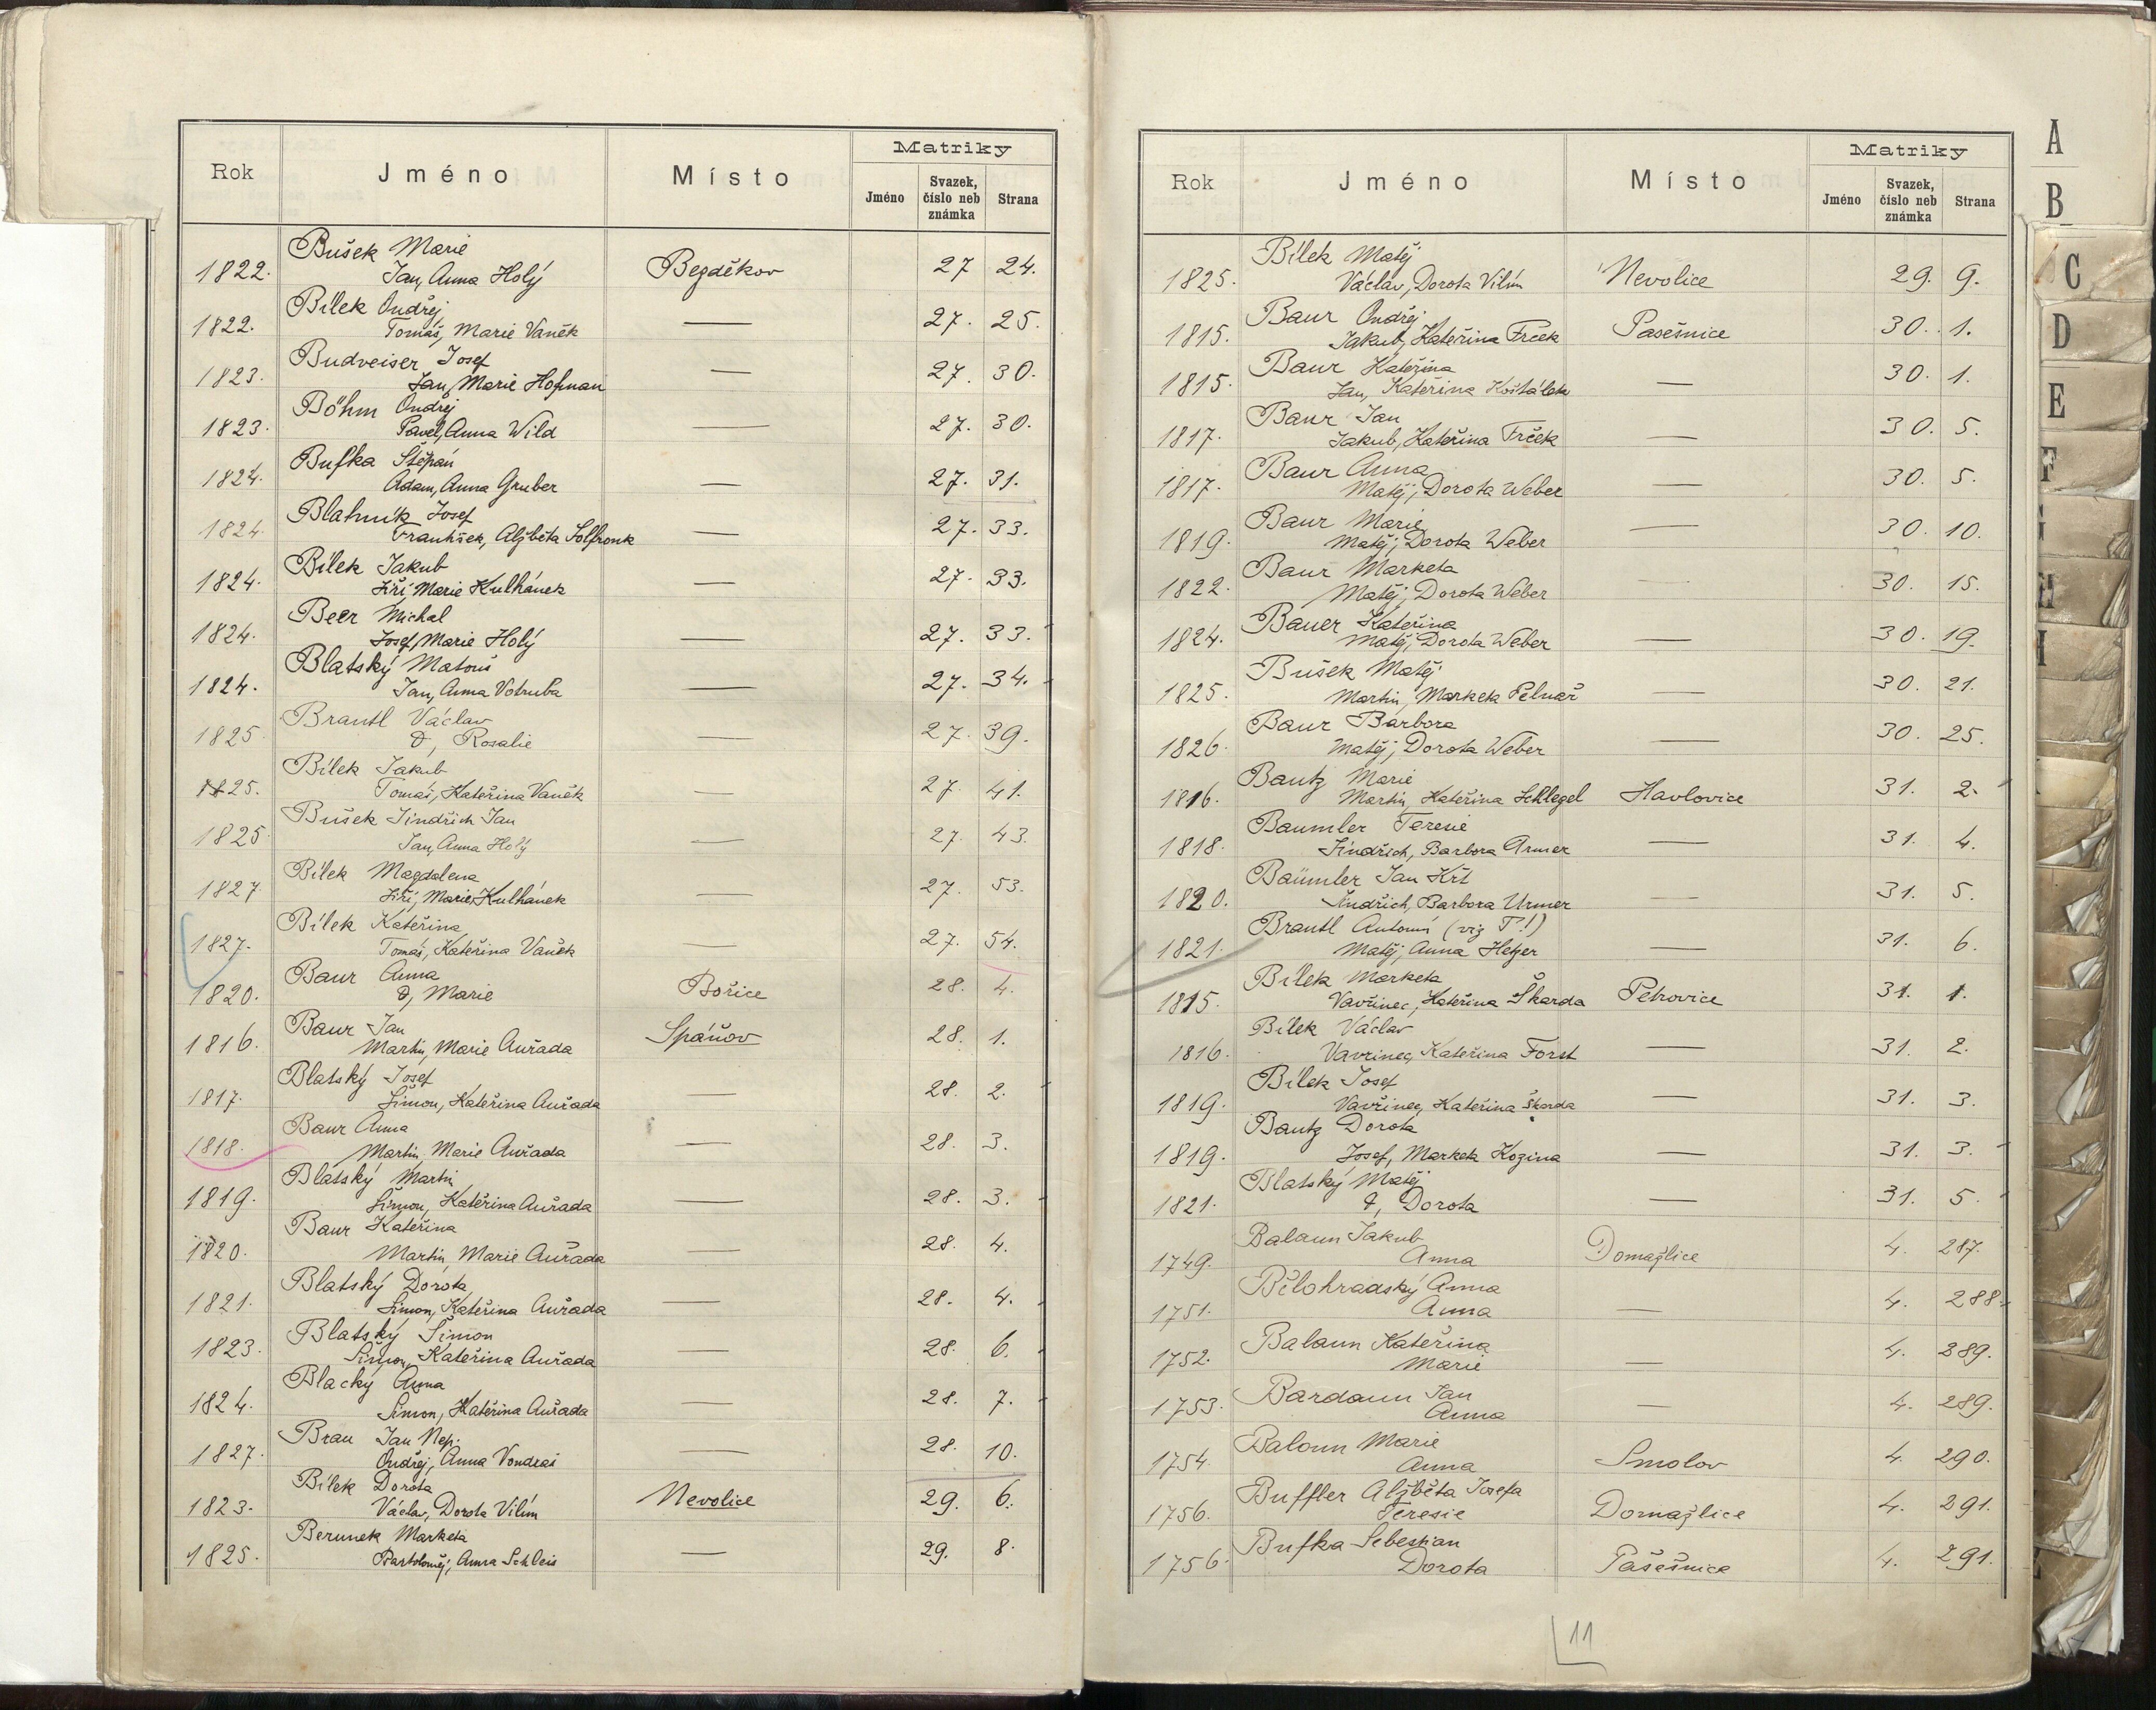 Matriky
Rok Jméno Místo Jméno Svazek, číslo neb známka Strana
Bušek Marie
1822. Jan, Anna Holý Bezděkov 27 24.
Bílek Ondřej
1822. Tomáš, Marie Vaněk — 27. 25.
Budveiser Josef
1823. Jan, Marie Hofman — 27. 30.
Böhm Ondřej
1823. Pavel, Anna Wild — 27. 30.
Bufka Štěpán
1824. Adam, Anna Gruber — 27. 31.
Blatník Josef
1824. František, Alžběta Solfronk — 27. 33.
Bílek Jakub
1824. Jiří Marie Kulhánek — 27. 33.
Beer Michal
1824. Josef, Marie Holý — 27. 33.
Blatský Matouš
1824. Jan, Anna Votruba — 27. 34.
Brantl Václav
1825 Rosalie — 27. 39.
Bílek Jakub
1825. Tomáš, Kateřina Vaněk — 27. 41.
Bušek Jindřich Jan
1825. Jan, Anna Holý — 27. 43.
Bílek Magdalena
1827 Jiří, Marie Kulhánek — 27. 53.
Bílek Kateřina
1827. Tomáš, Kateřina Vaněk — 27. 54.
Baur Anna
1820. Marie Bořice 28. 4.
Baur Jan
1816. Martin, Marie Auřada Spáňov 28. 1.
Blatský Josef
1817. Šimon, Kateřina Auřada — 28. 2.
Baur Anna
1818. Martin Marie Auřada — 28. 3.
Blatský Martin
1819. Šimon, Kateřina Auřada — 28. 3.
Baur Kateřina
1820. Martin, Marie Auřada — 28. 4.
Blatský Dorota
1821. Šimon, Kateřina Auřada — 28. 4.
Blatský Šimon
1823. Šimon, Kateřina Auřada — 28. 6.
Blacký Anna
1824. Šimon, Kateřina Auřada — 28. 7.
Brau Jan Nep.
1827. Ondřej, Anna Vondraš — 28. 10.
Bílek Dorota
1823. Václav, Dorota Vilím Nevolice 29. 6.
Berunek Marketa
1825. Bartoloměj, Anna Schleis — 29. 8.
Matriky
Rok Jméno Místo Jméno Svazek, číslo neb známka Strana
Bílek Matěj
1825. Václav, Dorota Vilím Nevolice 29. 9.
Baur Ondřej
1815. Jakub, Kateřina Frček Pasešnice 30. 1.
Baur Kateřina
1815. Jan, Kateřina Košťálek — 30. 1.
Baur Jan
1817. Jakub, Kateřina Frček — 30. 5.
Baur Anna
1817. Matěj, Dorota Weber — 30. 5.
Baur Marie
1819. Matěj, Dorota Weber — 30. 10.
Baur Marketa
1822. Matěj, Dorota Weber — 30. 15.
Bauer Kateřina
1824. Matěj, Dorota Weber — 30. 19.
Bušek Matěj
1825. Martin, Marketa Pelnař — 30. 21.
Baur Barbora
1826. Matěj, Dorota Weber — 30. 25.
Bautz Marie
1816. Martin, Kateřina Schlegel Havlovice 31. 2.
Baumler Teresie
1818. Jindřich, Barbora Armer — 31. 4.
Baümler Jan Křt
1820. Jindřich, Barbora Urmer — 31. 5.
Brantl Antonín (viz P!)
1821. Matěj, Anna Hetzer — 31. 6.
Bílek Marketa
1815. Vavřinec, Kateřina Škarda Petrovice 31. 1.
Bílek Václav
1816. Vavrinec, Kateřina Forst — 31. 2.
Bílek Josef
1819. Vavřinec, Kateřina Škarda — 31. 3.
Bautz Dorota
1819. Josef, Marketa Kozina — 31. 3.
Blatský Matěj
1821. Dorota — 31. 5.
Balaun Jakub
1749. Anna Domažlice 4. 287.
Bělohradský Anna
1751. Anna — 4. 288.
Balaun Kateřina
1752. Marie — 4. 289.
Bardaun Jan
1753. Anna — 4. 289.
Baloun Marie
1754. Anna Smolov 4. 290.
Buffler Alžběta Josefa
1756. Teresie Domažlice 4. 291.
Bufka Sebestian
1756. Dorota Pašešnice 4. 291.
11
A
B
C
D
E
F
G
H